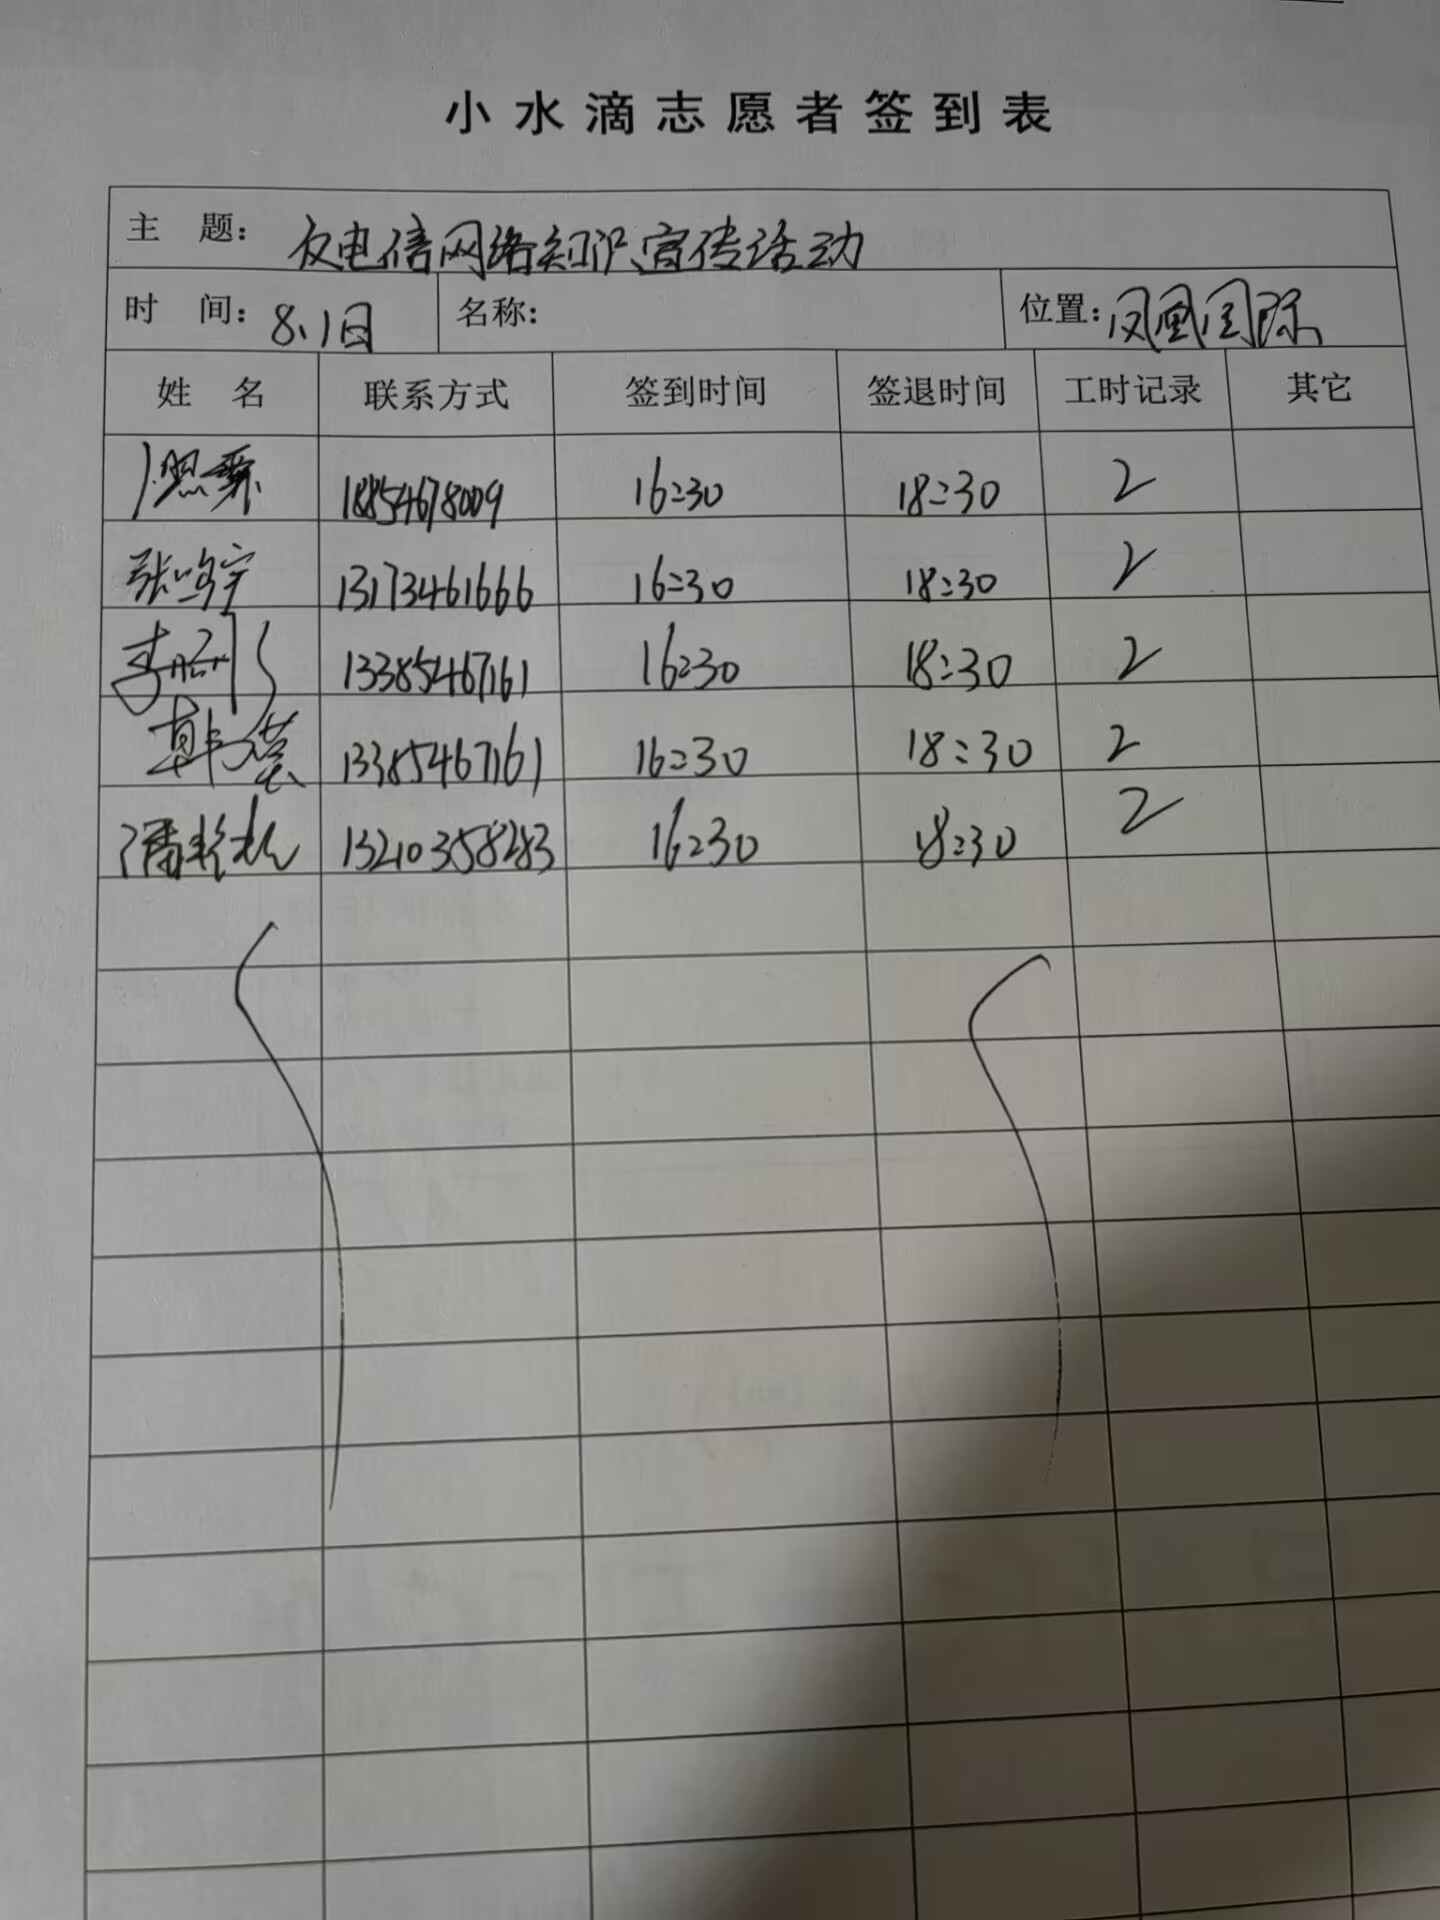 小水滴志愿者签到表
主 题: 反电信网络知识宣传活动
时 间: 8.1日 名称: 位置: 凤凰国际
姓 名 联系方式 签到时间 签退时间 工时记录 其它
18854678009 16:30 18:30 2
张鸣宇 13173461666 16:30 18:30 2
李 13385467161 16:30 18:30 2
韩 13385467161 16:30 18:30 2
潘 13210358283 16:30 18:30 2